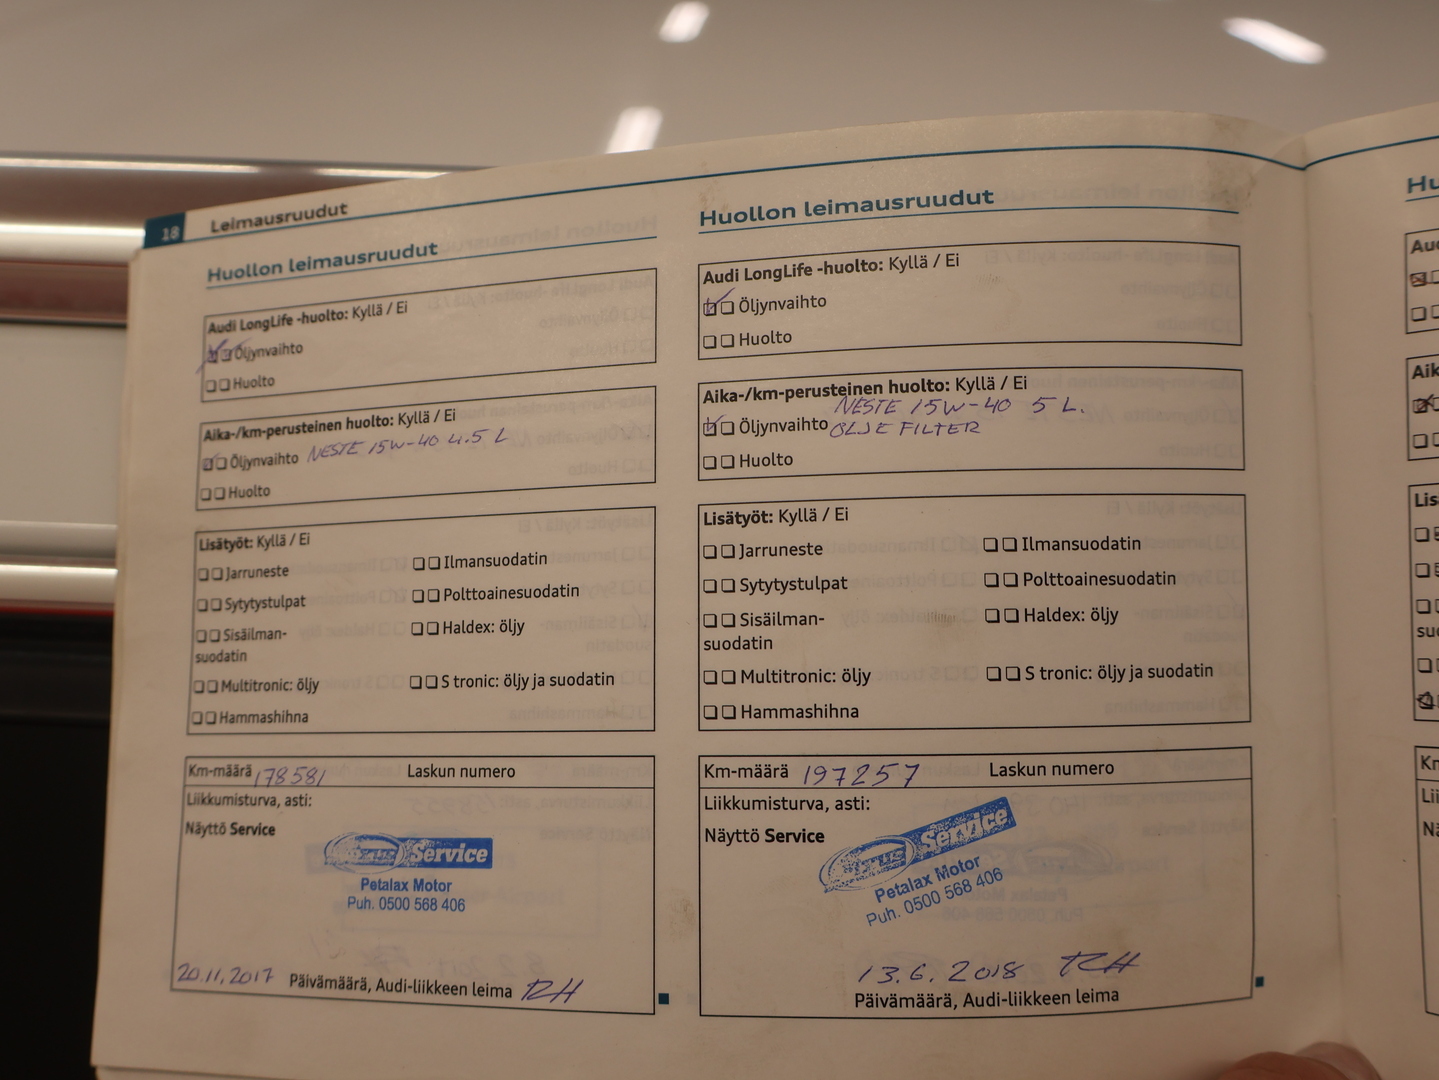 18 Leimausruudut
Huollon leimausruudut
Audi LongLife -huolto: Kyllä / Ei
Öljynvaihto
Huolto
Aika-/km-perusteinen huolto: Kyllä / Ei
Öljynvaihto NESTE 15W-40 4.5 L
Huolto
Lisätyöt: Kyllä / Ei
Jarruneste Ilmansuodatin
Sytytystulpat Polttoainesuodatin
Sisäilman- Haldex: öljy
suodatin
Multitronic: öljy S tronic: öljy ja suodatin
Hammashihna
Km-määrä 178581 Laskun numero
Liikkumisturva, asti:
Näyttö Service
Service
Petalax Motor
Puh. 0500 568 406
20.11.2017 Päivämäärä, Audi-liikkeen leima RH
Huollon leimausruudut
Audi LongLife -huolto: Kyllä / Ei
Öljynvaihto
Huolto
Aika-/km-perusteinen huolto: Kyllä / Ei
NESTE 15W-40 5 L.
Öljynvaihto OLJE FILTER
Huolto
Lisätyöt: Kyllä / Ei
Jarruneste Ilmansuodatin
Sytytystulpat Polttoainesuodatin
Sisäilman- Haldex: öljy
suodatin
Multitronic: öljy S tronic: öljy ja suodatin
Hammashihna
Km-määrä 197257 Laskun numero
Liikkumisturva, asti:
Näyttö Service
Service
Petalax Motor
Puh. 0500 568 406
13.6.2018 RH
Päivämäärä, Audi-liikkeen leima